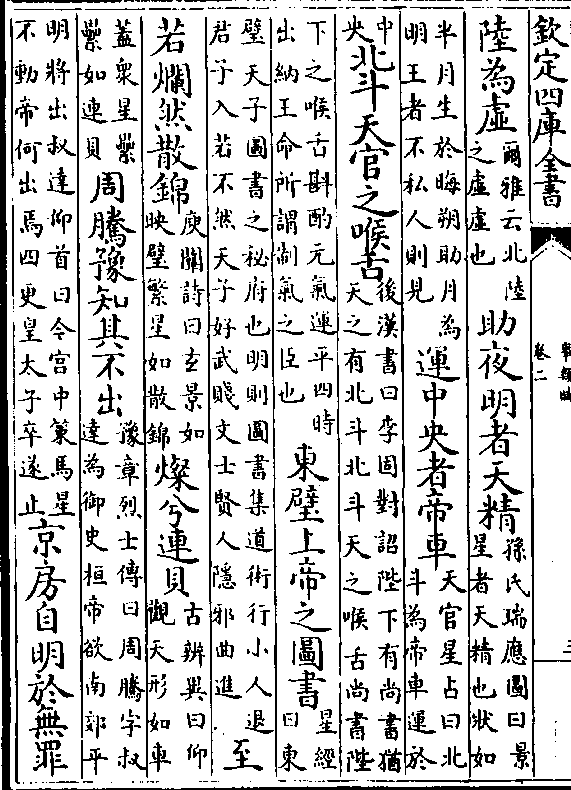 欽定四庫全書
事類賦
卷二
三
陸為虛
爾雅云北陸
之虛虛也
助夜明者天精
孫氏瑞應圖曰景
星者天精也狀如
半月生於晦朔助月為
明王者不私人則見
運中央者帝車
天官星占曰北
斗為帝車運於
中
央
北斗天官之喉舌
後漢書曰李固對詔陛下有尚書猶
天之有北斗北斗天之喉舌尚書陛
下之喉舌斟酌元氣運平四時
出納王命所謂制氣之臣也
東壁上帝之圖書
星經
曰東
壁天子圖書之秘府也明則圖書集道術行小人退
君子入若不然天子好武賤文士賢人隱邪曲進
至
若爛然散錦
庾闡詩曰玄景如
映璧繁星如散錦
燦兮連貝
古辨異曰仰
觀天形如車
蓋衆星纍
纍如連貝
周騰豫知其不出
豫章烈士傳曰周騰字叔
達為御史桓帝欲南郊平
明將出叔達仰首曰今宫中策馬星
不動帝何出焉四更皇太子卒遂止
京房自明於無罪